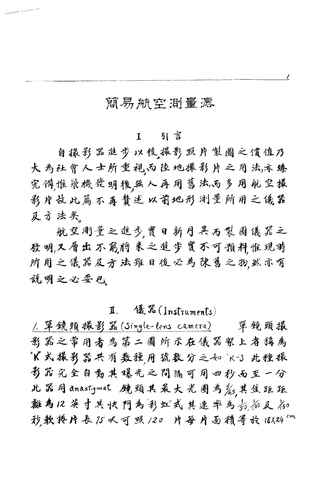 簡易航空測量學
I 引言
自攝影器進步以後,攝影照片製圖之價值乃
大為社會人士所重視,而陸地攝影片之用法,亦臻
完備惟飛機發明後,無人再用舊法,而多用航空攝
影片故此篇不再贅述以前地形測量所用之儀器
及方法矣。
航空測量之進步,實日新月異,而製圖儀器之
發明,又層出不窮,將來之進步實不可預料,惟現時
所用之儀器及方法雖日後必為陳舊之物,然亦有
說明之必要也。
II. 儀器(Instruments)
1. 單鏡頭攝影器(Single-lens camera) 單鏡頭攝
影器之常用者為第二圖所示在儀器架上者稱為
"K"式攝影器共有數種,用號數分之如"K-3 此種攝
影器完全自為其曝光之間隔可用四秒而至一分
此器用anastigmat 鏡頭其最大光圈為 其焦距距
離為12英寸其快門為彩虹式其速率為 及
秒,軟捲片長75呎可照120片每片面積等於18X24cm